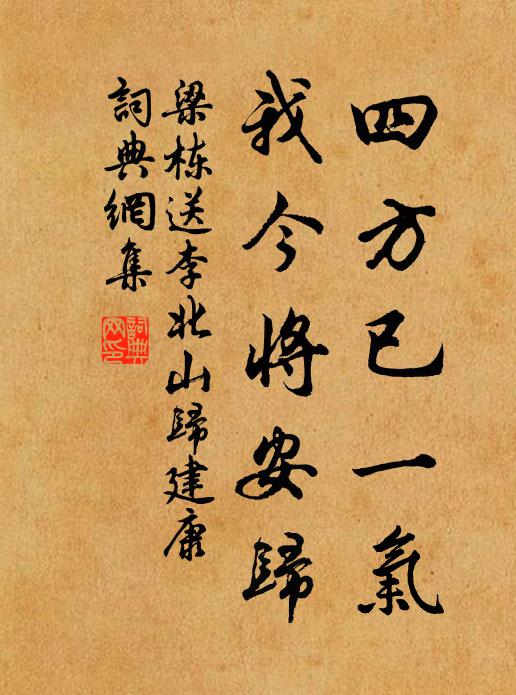 四方已一氣
我今將安歸
梁栋送李北山歸建康
詞典網集
詞典
网印